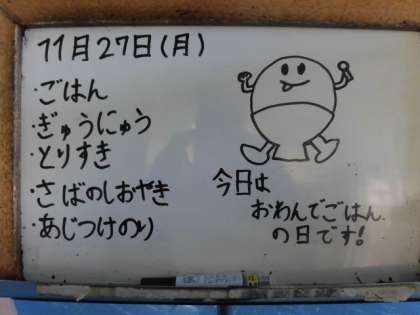 11月27日(月)
・ごはん
・ぎゅうにゅう
・とりすき
・さばのしおやき
・あじつけのり
今日は
おわんでごはん
の日です!